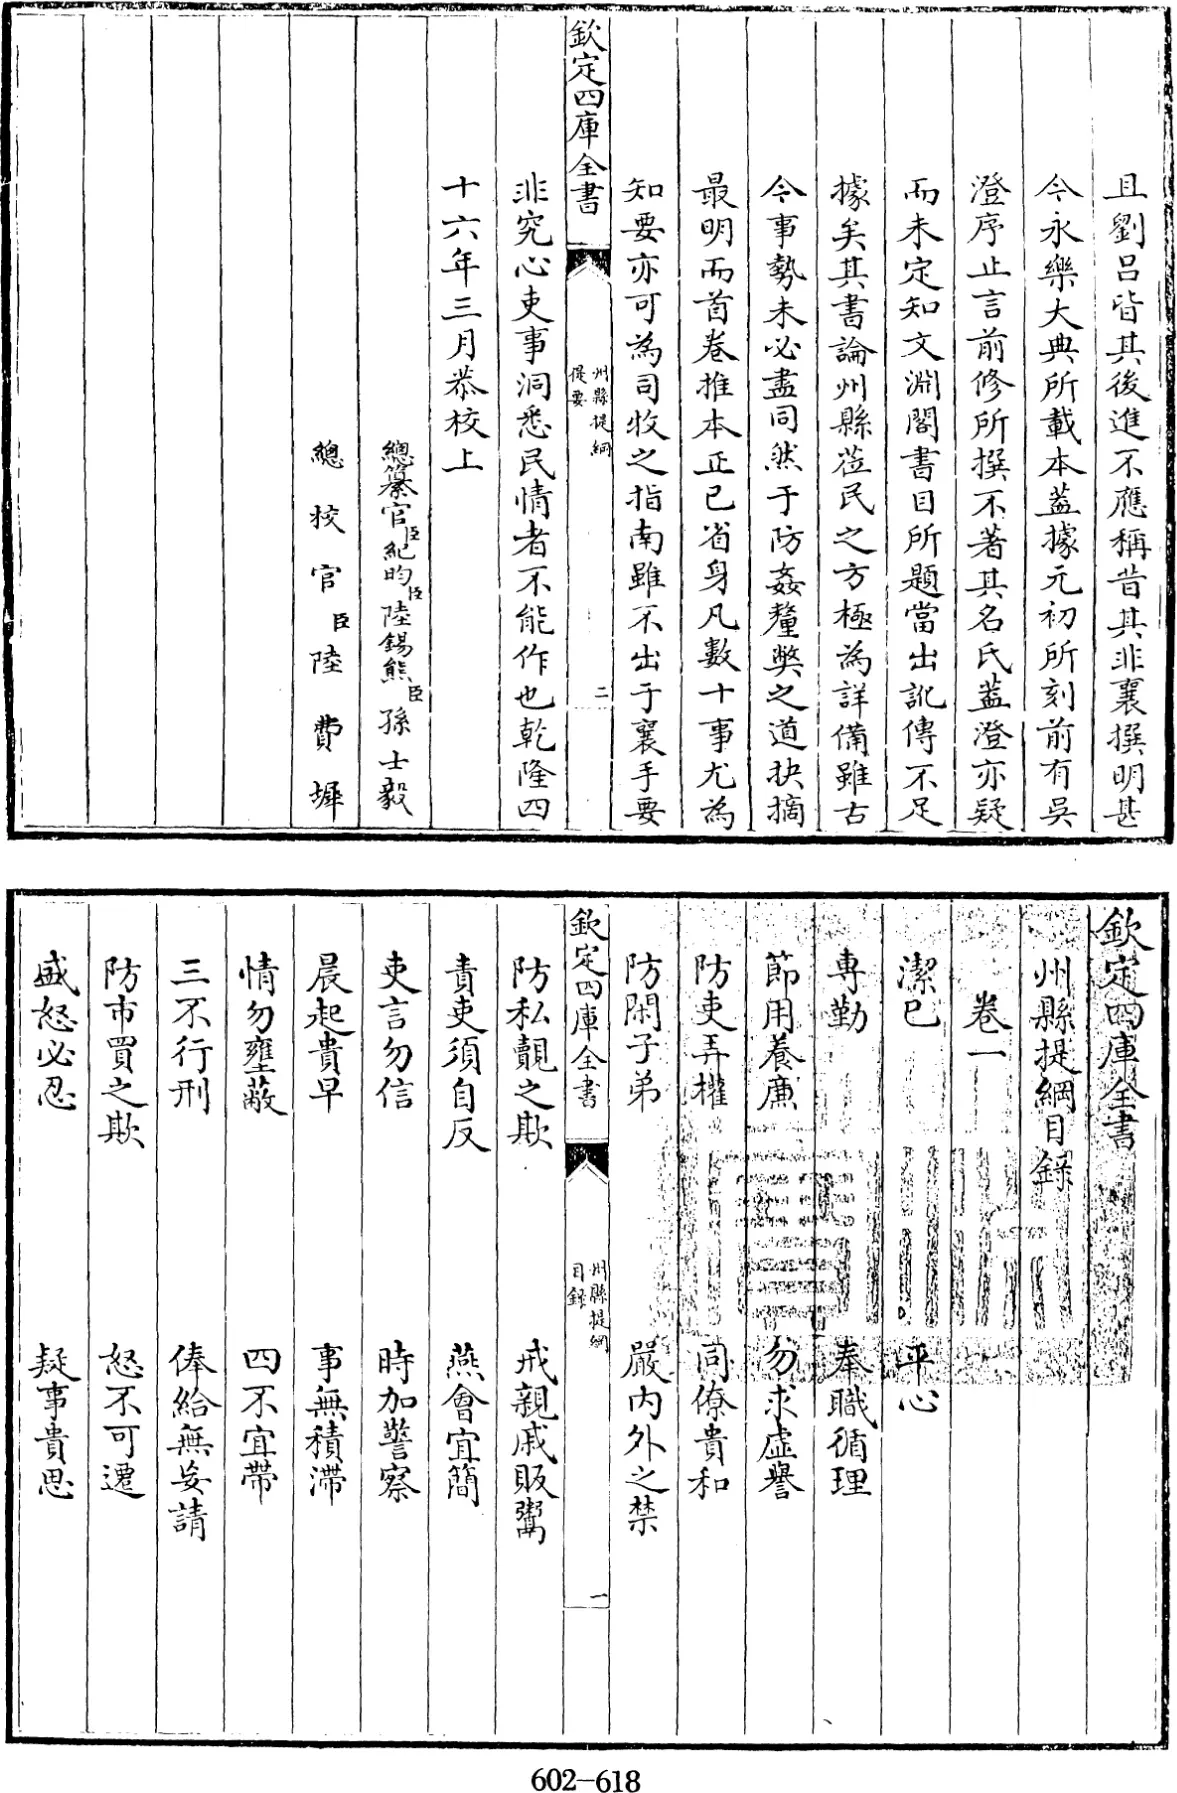 且劉呂皆其後進不應稱昔其非襄撰明甚
今永樂大典所載本蓋據元初所刻前有吳
澄序止言前修所撰不著其名氏蓋澄亦疑
而未定知文淵閣書目所題當出訛傳不足
據矣其書論州縣蒞民之方極為詳備雖古
今事勢未必盡同然于防姦釐弊之道抉摘
最明而首卷推本正已省身凡數十事尤為
知要亦可為司牧之指南雖不出于襄手要
欽定四庫全書
州縣提綱
提要
二
非究心吏事洞悉民情者不能作也乾隆四
十六年三月恭校上
總纂官臣紀昀臣陸錫熊臣孫士毅
總校官臣陸費墀
欽定四庫全書
州縣提綱目錄
卷一
潔已 平心
專勤 奉職循理
節用養廉 勿求虛譽
防吏弄權 同僚貴和
防閑子弟 嚴內外之禁
欽定四庫全書
州縣提綱
目錄
一
防私覿之欺 戒親戚販鬻
責吏須自反 燕會宜簡
吏言勿信 時加警察
晨起貴早 事無積滯
情勿壅蔽 四不宜帶
三不行刑 俸給無妄請
防市買之欺 怒不可遷
盛怒必忍 疑事貴思
602-618